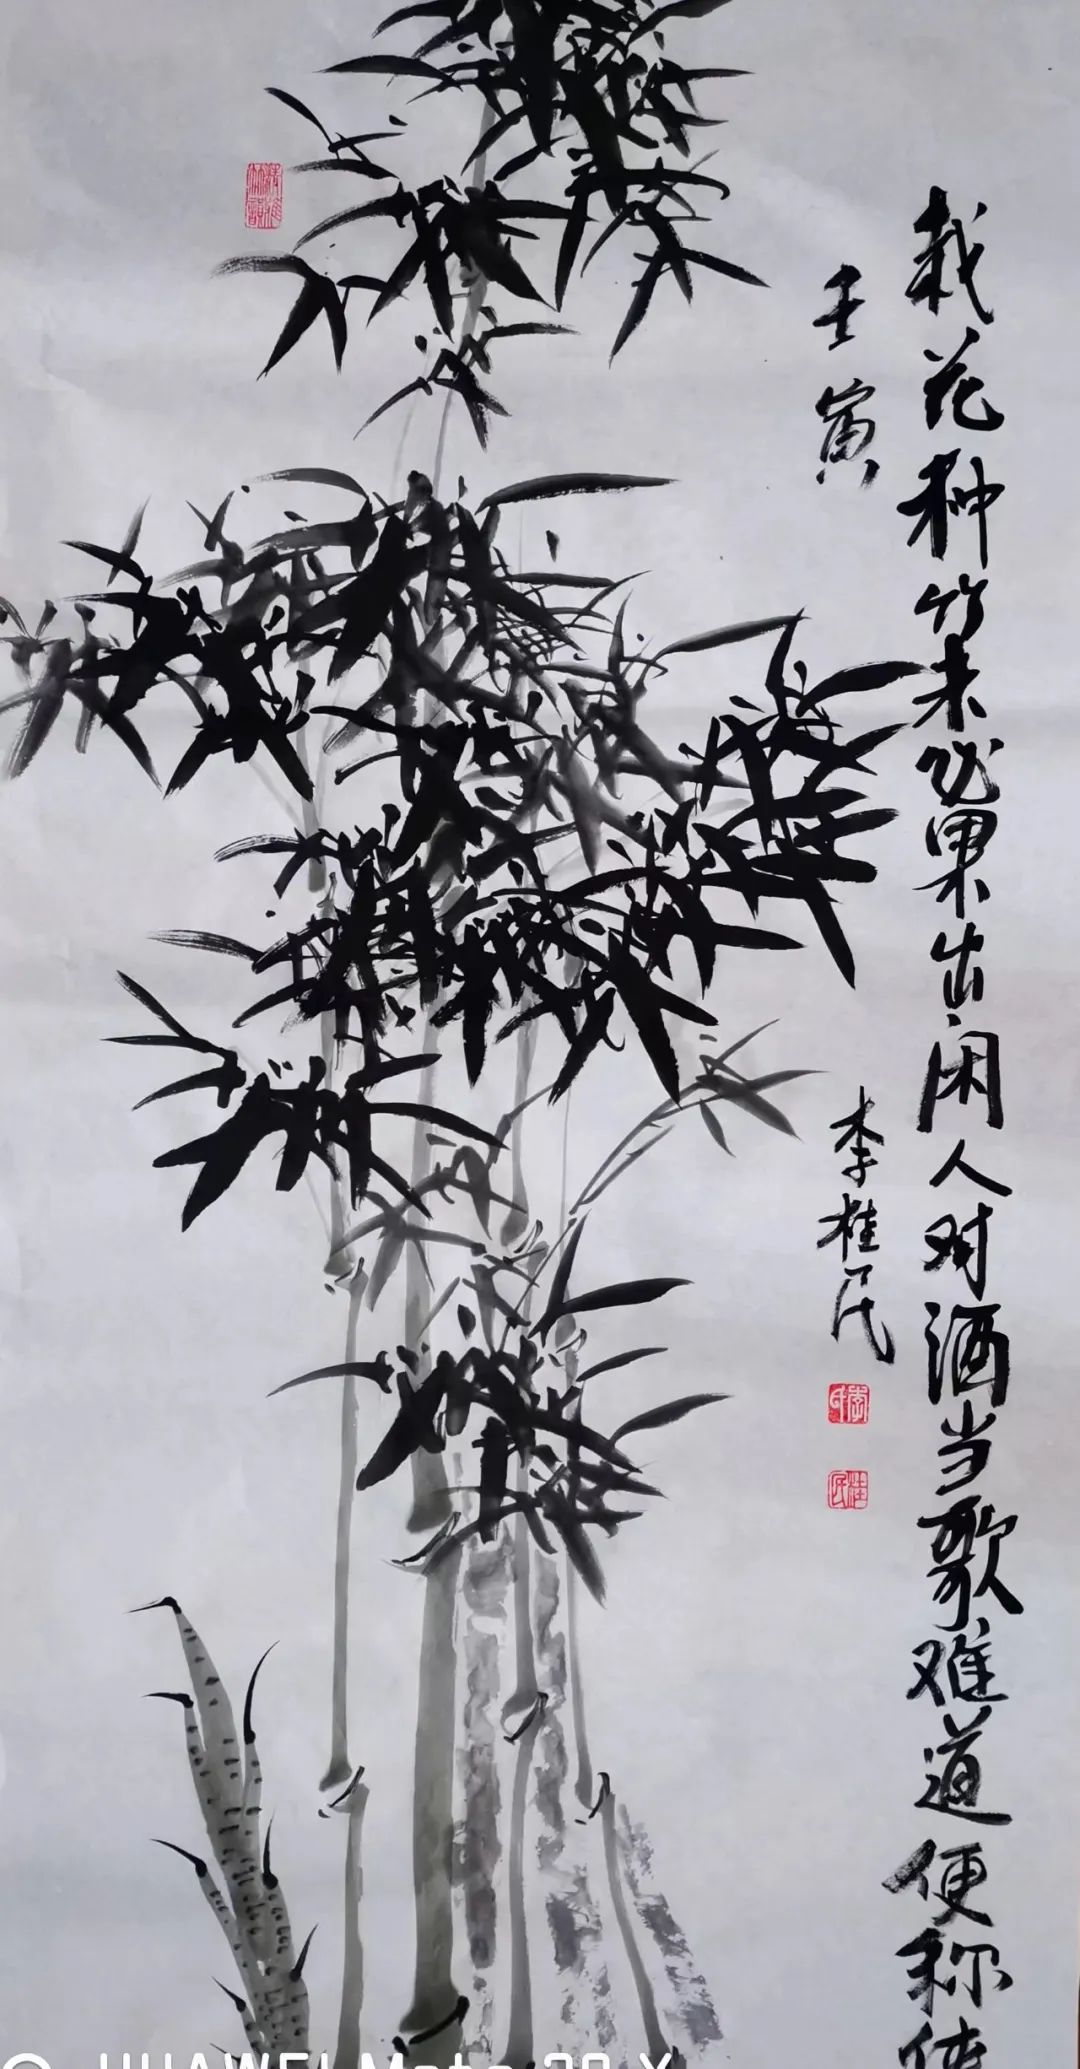 栽花种竹未必果出闲人对酒当歌难道便称侠
壬寅
李桂民
李
桂民
HUAWEI Mate 30 X